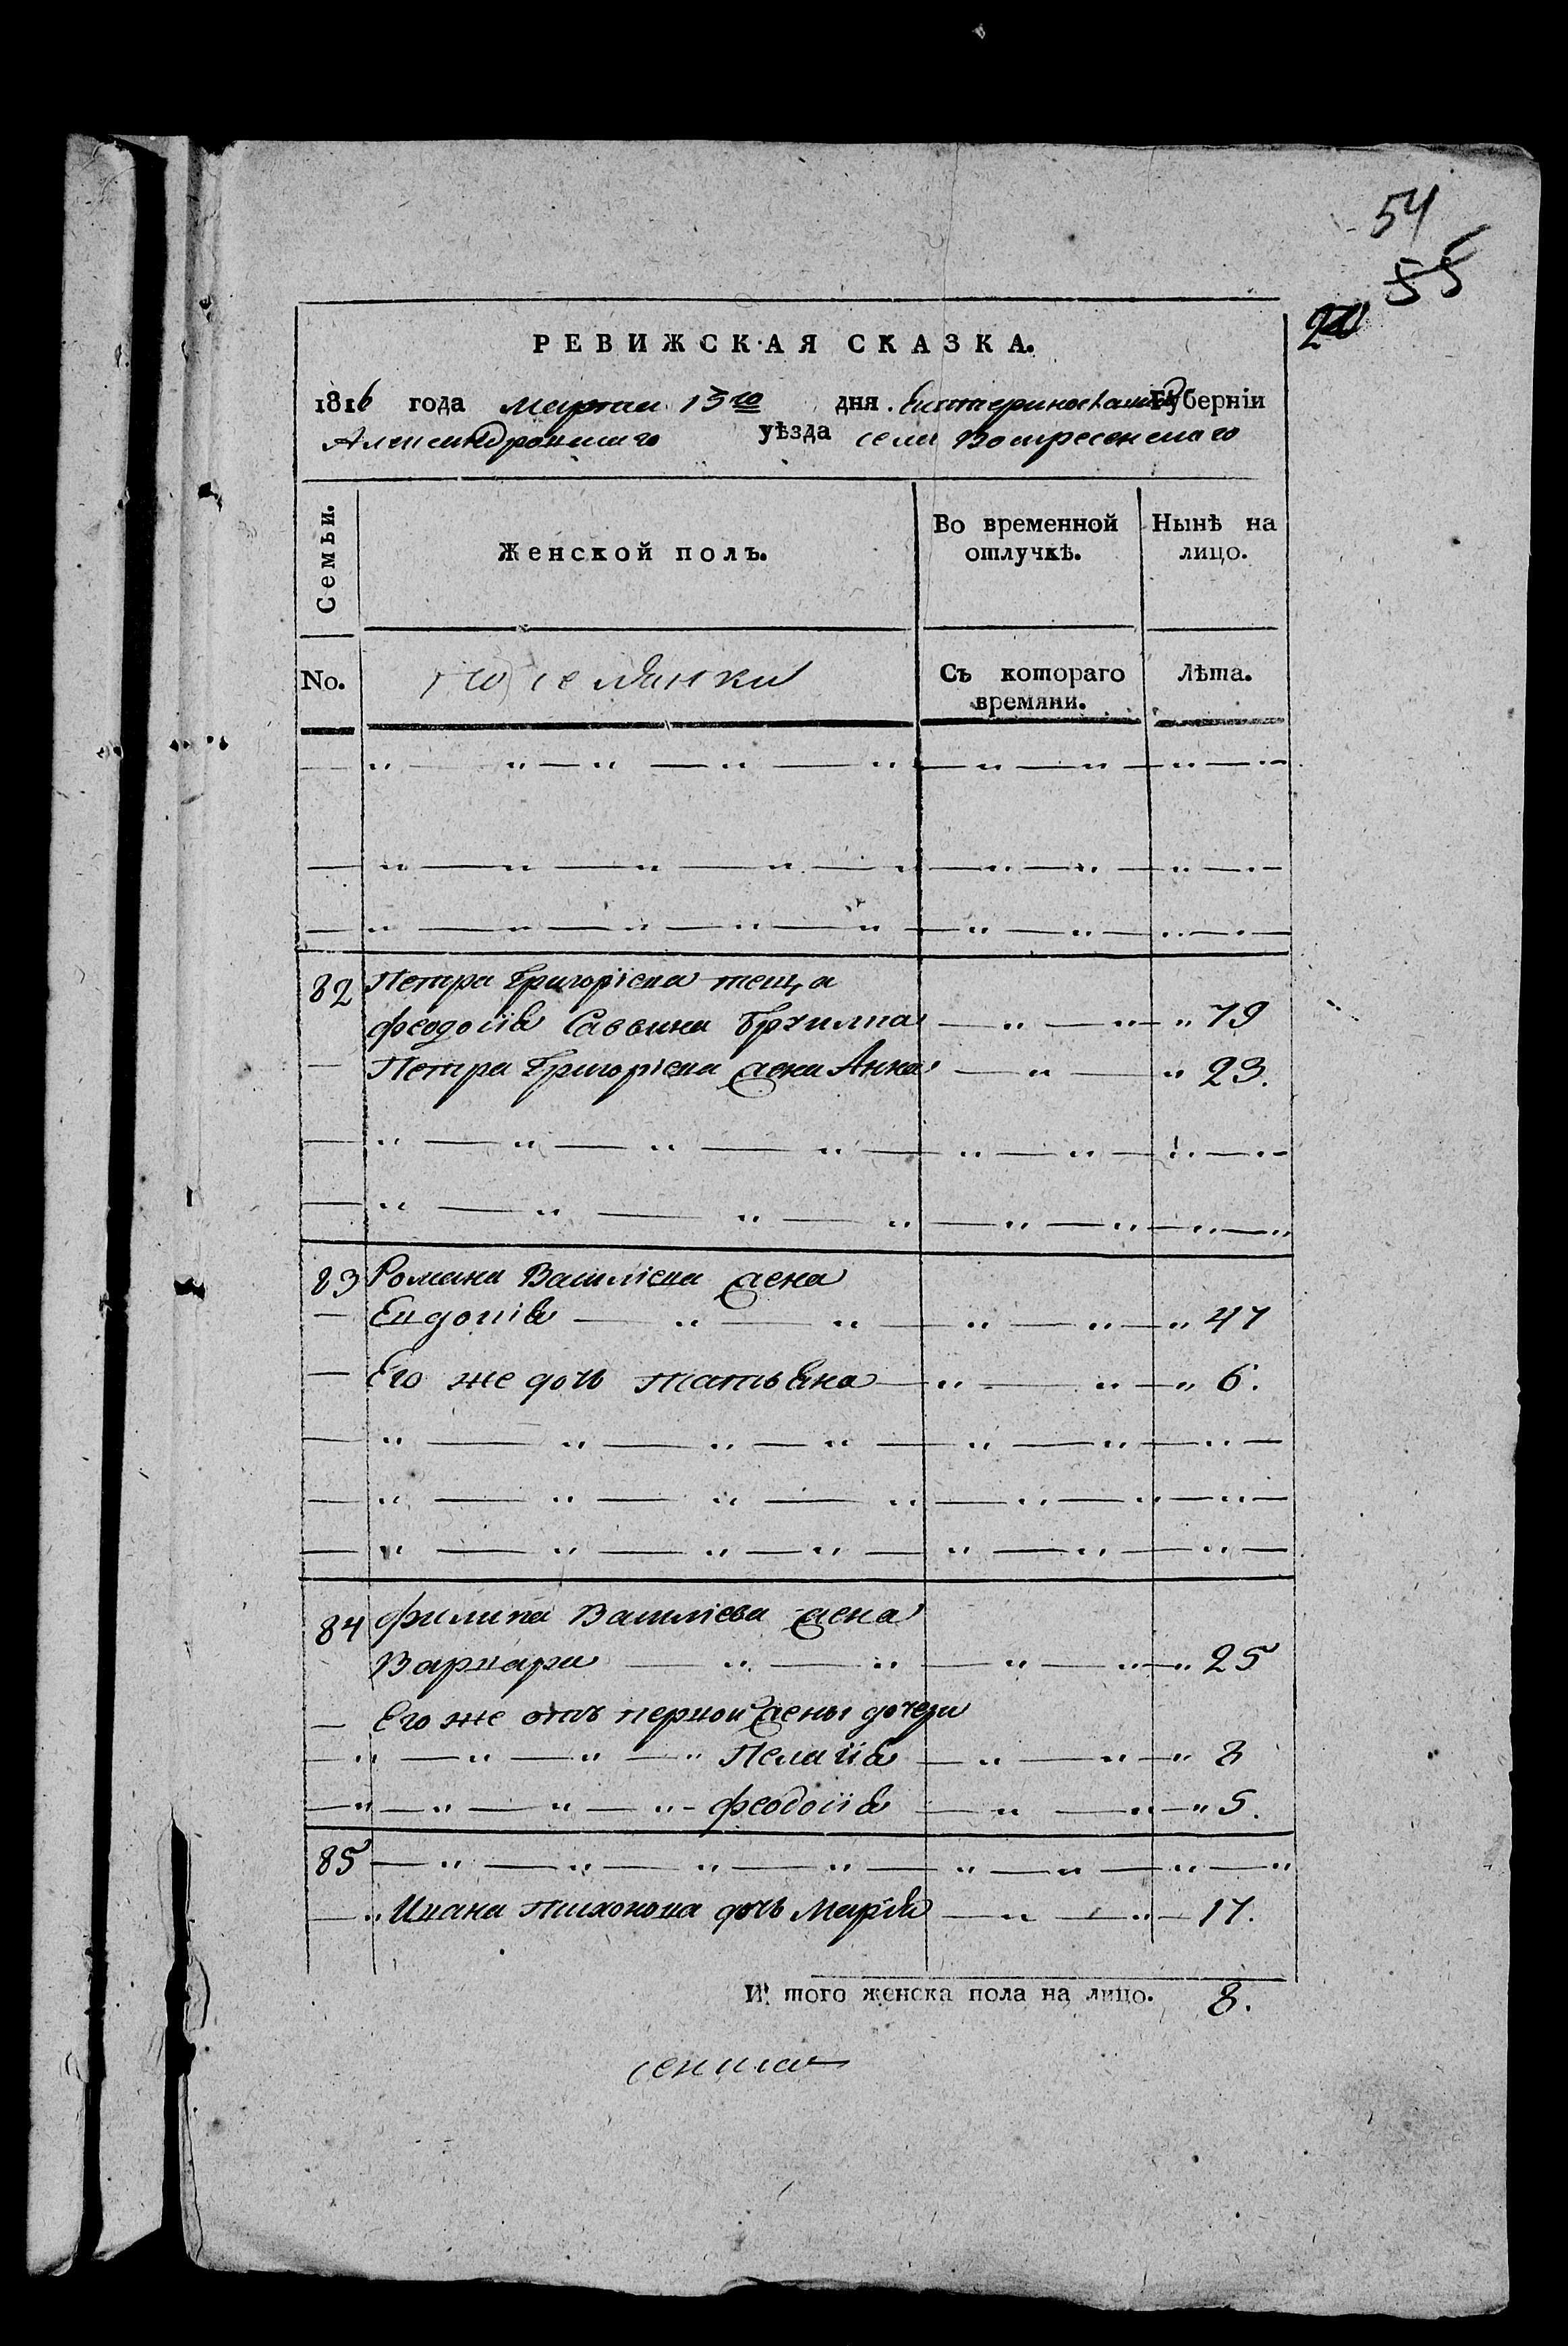 54
55
РЕВИЖСКАЯ СКАЗКА.
1816 года Марта 15го дня Екатеринославской Губерніи
Александровскаго уѣзда села Воскресенскаго
Семьи. Женской полъ. Во временной отлучкѣ. Нынѣ на лицо.
No. Съ котораго времяни. Лѣта.
82 Петра Григоріева теща
Феодосія Саввина 79
Петра Григоріева жена Анна 23.
83 Романа Василіева жена
Евдокія 47
Его же дочь Татьяна 6.
84 Филипа Василіева жена
Варвара 25
Его же отъ первой жены дочери
Пелагія 8
Феодосія 5.
85
Ивана Тихонова дочь Марія 17.
И того женска пола на лицо. 8.